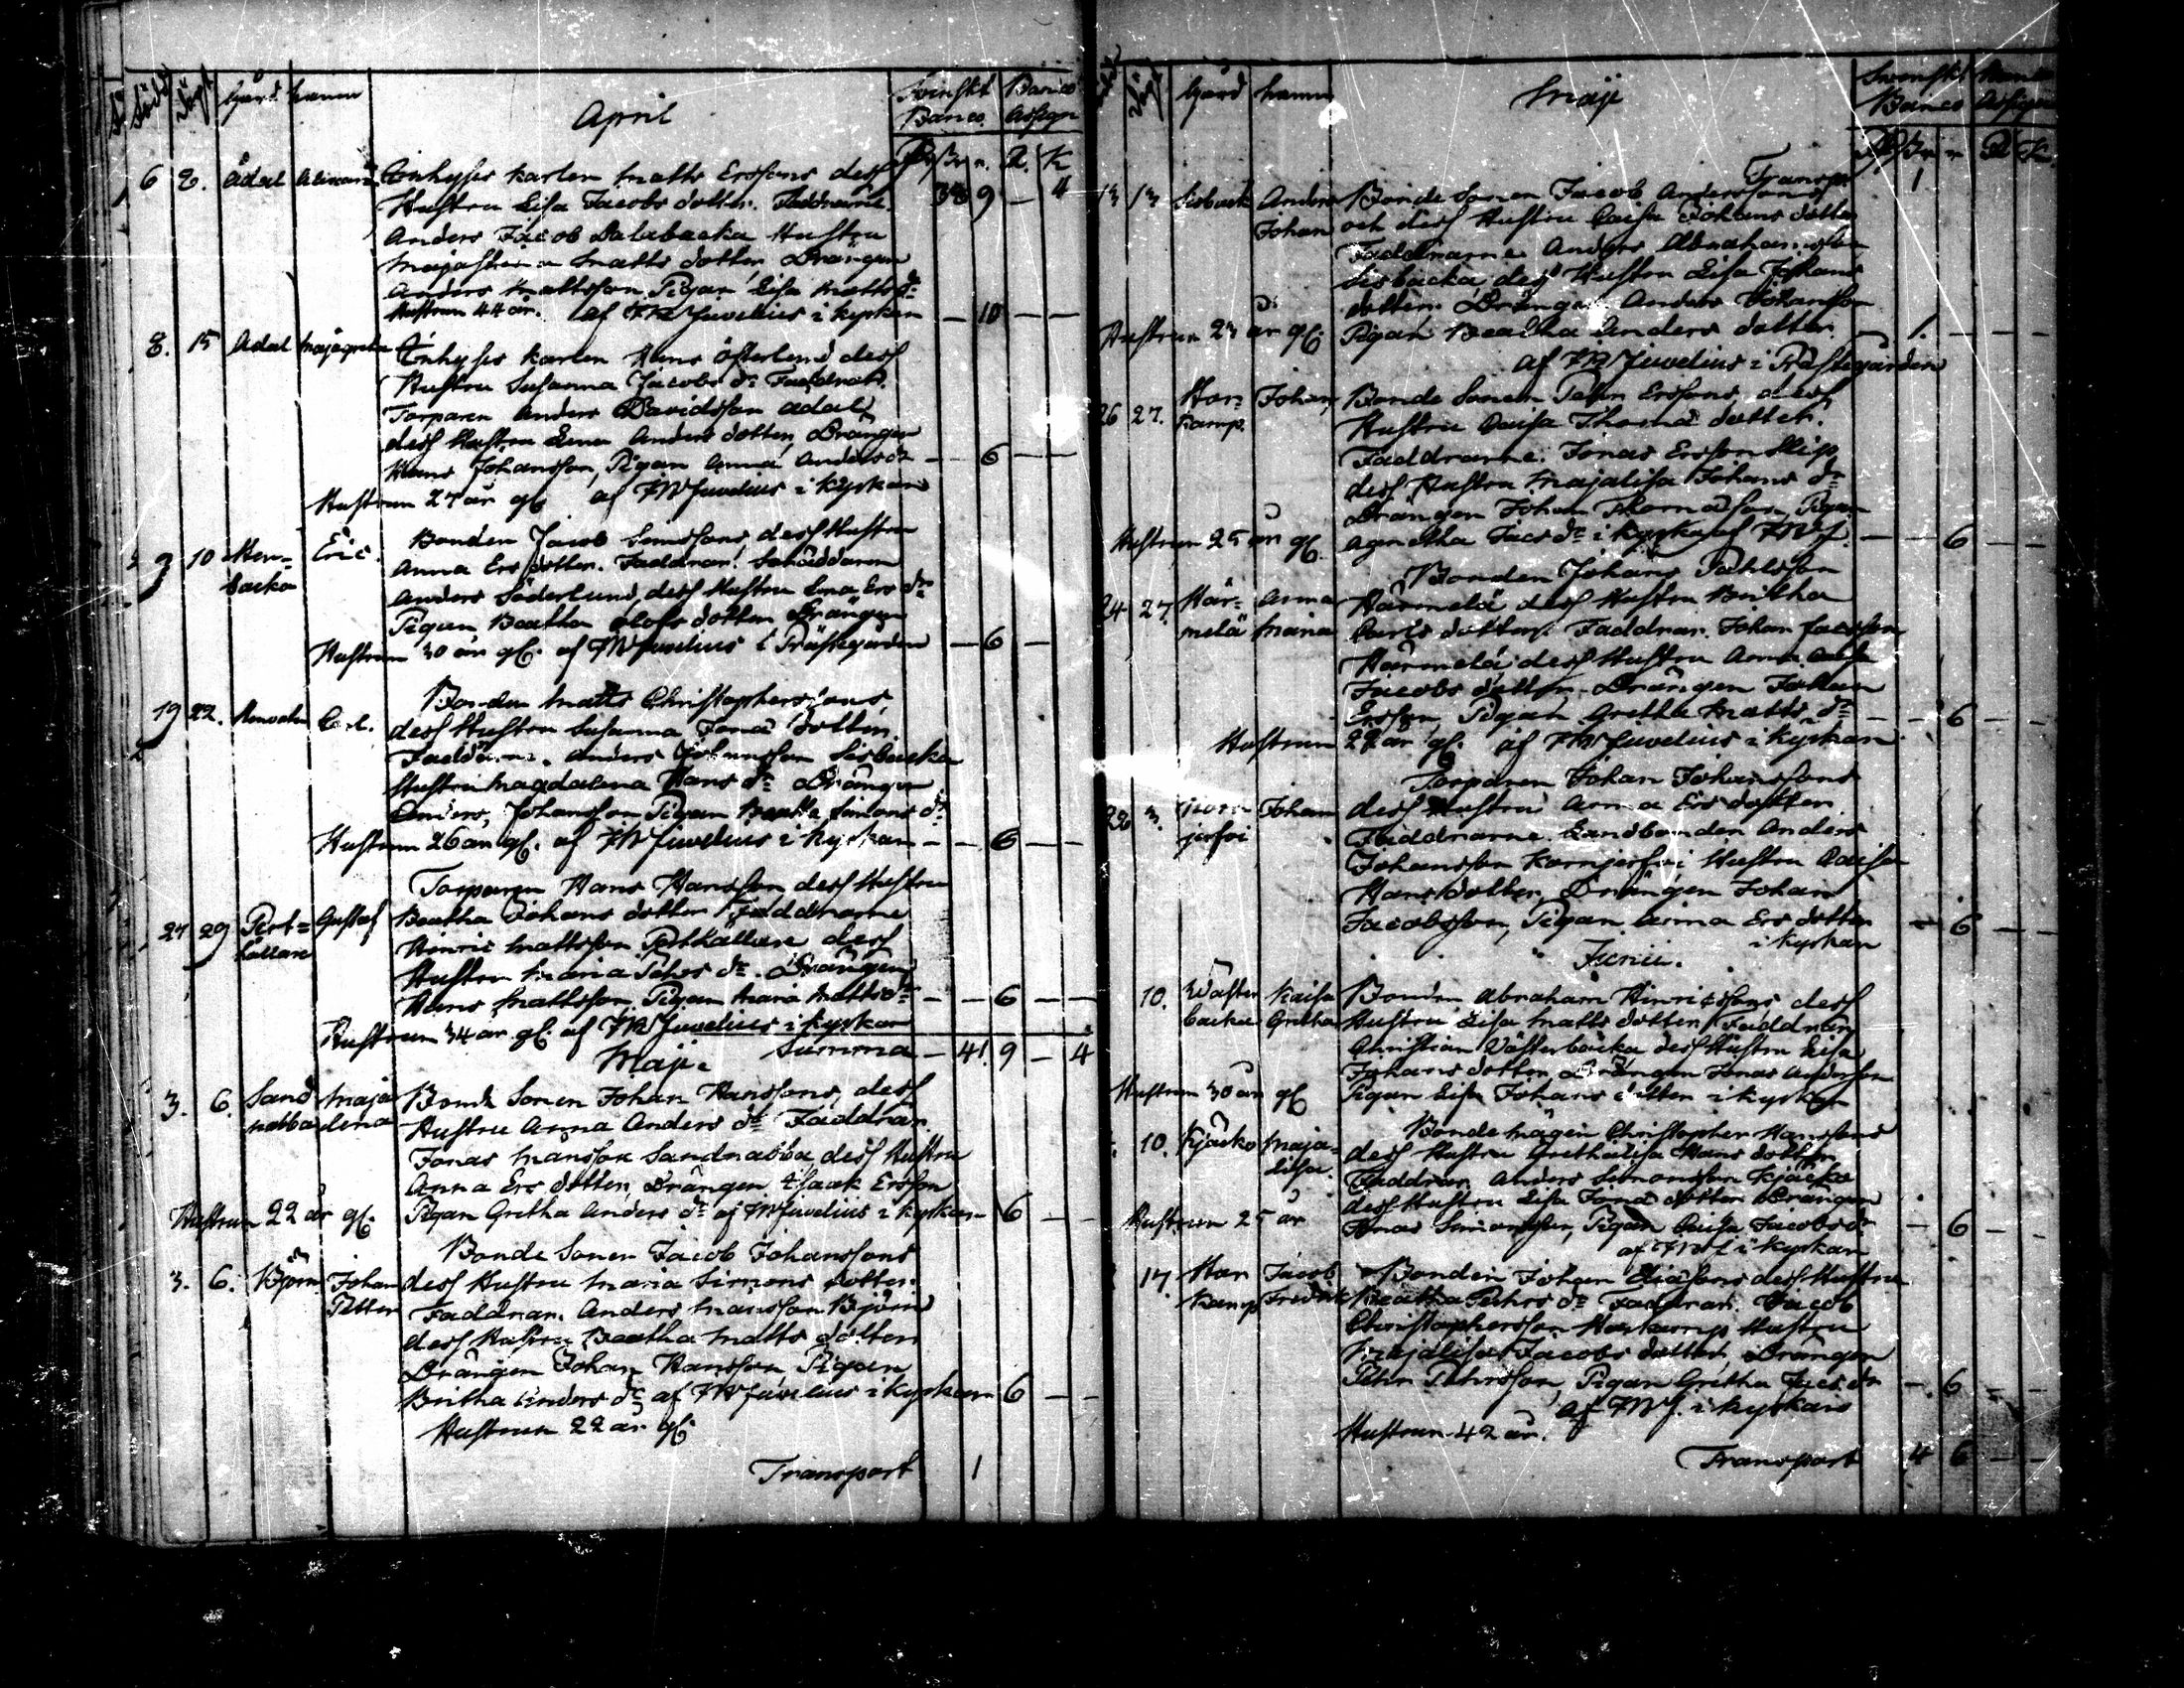 Född Döpt Gård Namn April Svenskt Banco Banco Assign
R S r. R K
6 6. Ådal Inhyses karlen Matts Erssons dess 38 9 – 4
Hustru Lisa Jacobs dotter. Faddrarne
Anders Jacob Dalabacka Hustru
Matts dotter Drängen
Anders Mattsson, Pigan Lisa Matts dr
Hustrun 44 år. af FW Juvelius i kyrkan – 10 – –
8. 15 Ådal Majagreta Inhyses karlen Hans Österlund dess
Hustru Susanna Jacobs dr Faddrar.
Torparen Anders Davidsson Ådal
dess Hustru Lena Anders dotter, Drängen
Hans Johansson, Pigan Anna Anders dr – 6 – –
Hustrun 27 år gl. af FW Juvelius i kyrkan
9 10 backa Eric. Bonden Jacob Simssons dess Hustru
Anna Ers dotter. Faddrar: Schräddaren
Anders Söderlund, dess Hustru Lena Ers dr
Pigan Beatha Olofs dotter Drängen
Hustrun 30 år gl. af FW Juvelius i Prästegården – 6 –
19 22. Carl. Bonden Matts Christopherssons,
dess Hustru Susanna Jona dotter.
Faddrarne. Anders Johansson Sisbacka
Hustru Magdalena Hans dr Drängen
Anders Johansson Pigan Beatha Simons dr
Hustrun 26 år gl. af FW Juvelius i kyrkan – – 6 – –
Torparen Hans Hansson dess Hustru
27 29 Pert= källare Gustaf Beatha Johans dotter Faddrarne
Hinric Mattsson Pertkällare dess
Hustru Maria Pehrs dr. Drängen
Hans Mattsson, Pigan Maria Matts dr – – 6 – –
Hustrun 34 år gl. af FW Juvelius i kyrkan
Maji. Summa – 41 9 – 4
3. 6. Sand nabba Maja lena Bonde Sonen Johan Hanssons, dess
Hustru Anna Anders dr Faddrar.
Jonas Mansson Sandnabba dess Hustru
Anna Ers dotter, Drängen Isaak Ersson
Hustrun 22 år gl. Pigan Gretha Anders dr af FW Juvelius i kyrkan 6 – –
3. 6. Björn Johan Petter Bonde Sonen Jacob Johanssons
dess Hustru Maria Simons dotter.
Faddrar. Anders Mansson Björn
dess Hustru Beatha Matts dotter
Drängen Johan Hansson, Pigan
Britha Anders dr af FW Juvelius i kyrkan 6 – –
Hustrun 22 år gl.
Transport 1
Gård Namn Maji Svenskt Banco Assign
Transp. 1
13 13 Sisbacka Anders Johan Bonde Sonen Jacob Anderssons
och dess Hustru Caisa Johans dotter
Faddrarne Anders Abrahamsson
Sisbacka dess Hustru Lisa Johans
dotter. Drängen Anders Johansson
Hustrun 23 år gl. Pigan Beatha Anders dotter. – 1. – – –
af FW Juvelius i Prästegården
26 27. Hor= kamp. Johan Bonde Sonen Pehr Erssons dess
Hustru Caisa Thoma dotter.
Faddrarne. Jonas Ersson Slip
dess Hustru Majalisa Johans dr
Drängen Johan Thomasson, Pigan
Hustrun 25 år gl. Agnetha Jacs dr i kyrkan af FWJ. – – 6 – –
Bonden Johans Pahlsson
24 27. Här= melä Anna Maria Härmelä dess Hustru Britha
Carls dotter. Faddrar. Johan Jacsson
Härmelä dess Hustru Anna Caisa
Jacobs dotter. Drängen Johan
Ersson, Pigan Gretha Matts dr – – 6 – –
Hustrun 22 år gl. af FW Juvelius i kyrkan
Torparen Johan Johanssons
3. jerfvi Johan dess Hustru Anna Ers dotter
Faddrarne. Landbonden Anders
Johansson Kornjerfvi Hustru Caisa
Hans dotter, Drängen Johan
Jacobsson, Pigan Anna Ers dotter – 6 – –
i kyrkan
Junii.
10. Wäster backa Kaisa Gretha Bonden Abraham Hinrichssons dess
Hustru Lisa Matts dotter, Faddrar.
Christian Wästerbacka dess Hustru Lisa
Johans dotter, Drängen Jonas Andersson
Hustrun 30 år gl Pigan Lisa Johans dotter i kyrkan
10. Kjäcko Maja= lisa. Bonde Mågen Christopher Hanssons
dess Hustru Grethalisa Hans dotter.
Faddrar. Anders Simonsson Kjäcko
dess Hustru Lisa Jona dotter Drängen
Hustrun 25 år Jonas Simonsson, Pigan Caisa Jacobs dr – 6 –
af FWJ i kyrkan
17. Hor kamp Jacob Fredrik Bonden Johan Eliassons dess Hustru
Beatha Pehrs dr Faddrar. Jacob
Christophersson Horkamp Hustru
Majalisa Jacobs dotter, Drängen
Pehr Pehrsson, Pigan Gretha Jacs dr – 6 – –
af FWJ. i kyrkan
Hustrun 42 år.
Transport 4 6 – –